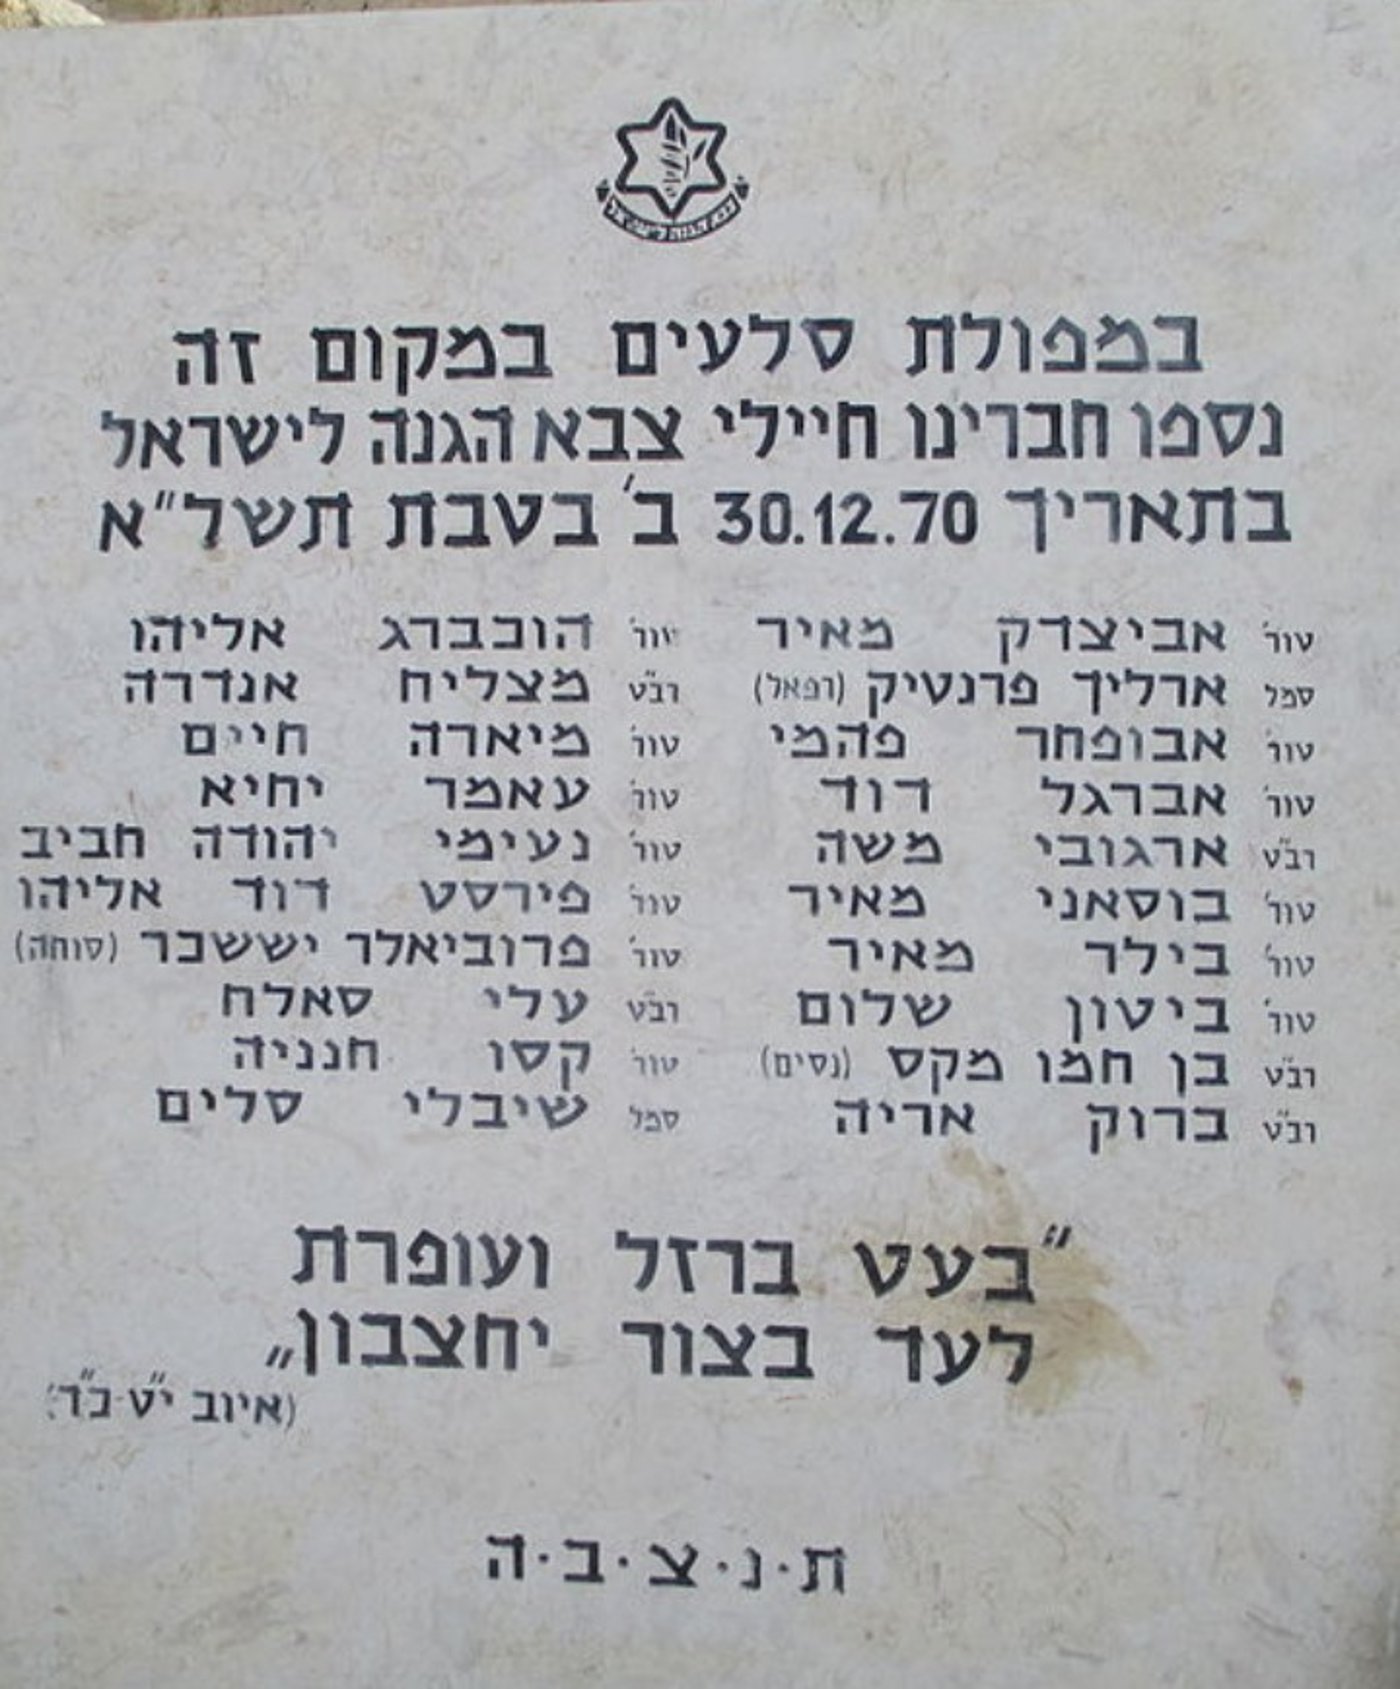 צבא הגנה לישראל
במפולת סלעים במקום זה
נספו חברינו חיילי צבא הגנה לישראל
בתאריך 30.12.70 ב' בטבת תשל"א
טור' אביצדק מאיר
סמל ארליך פרנטיק (רפאל)
טור' אבופחר פהמי
טור' אברגל דוד
רב"ט ארגובי משה
טור' בוסאני מאיר
טור' בילר מאיר
טור' ביטון שלום
רב"ט בן חמו מקס (נסים)
רב"ט ברוק אריה
טור' הוכברג אליהו
רב"ט מצליח אנדרה
טור' מיארה חיים
טור' עאמר יחיא
טור' נעימי יהודה חביב
טור' פירסט דוד אליהו
טור' פרוביאלר יששכר (סוחה)
רב"ט עלי סאלח
טור' קסו חנניה
סמל שיבלי סלים
"בעט ברזל ועופרת
לעד בצור יחצבון"
(איוב י"ט-כ"ד)
ת.נ.צ.ב.ה